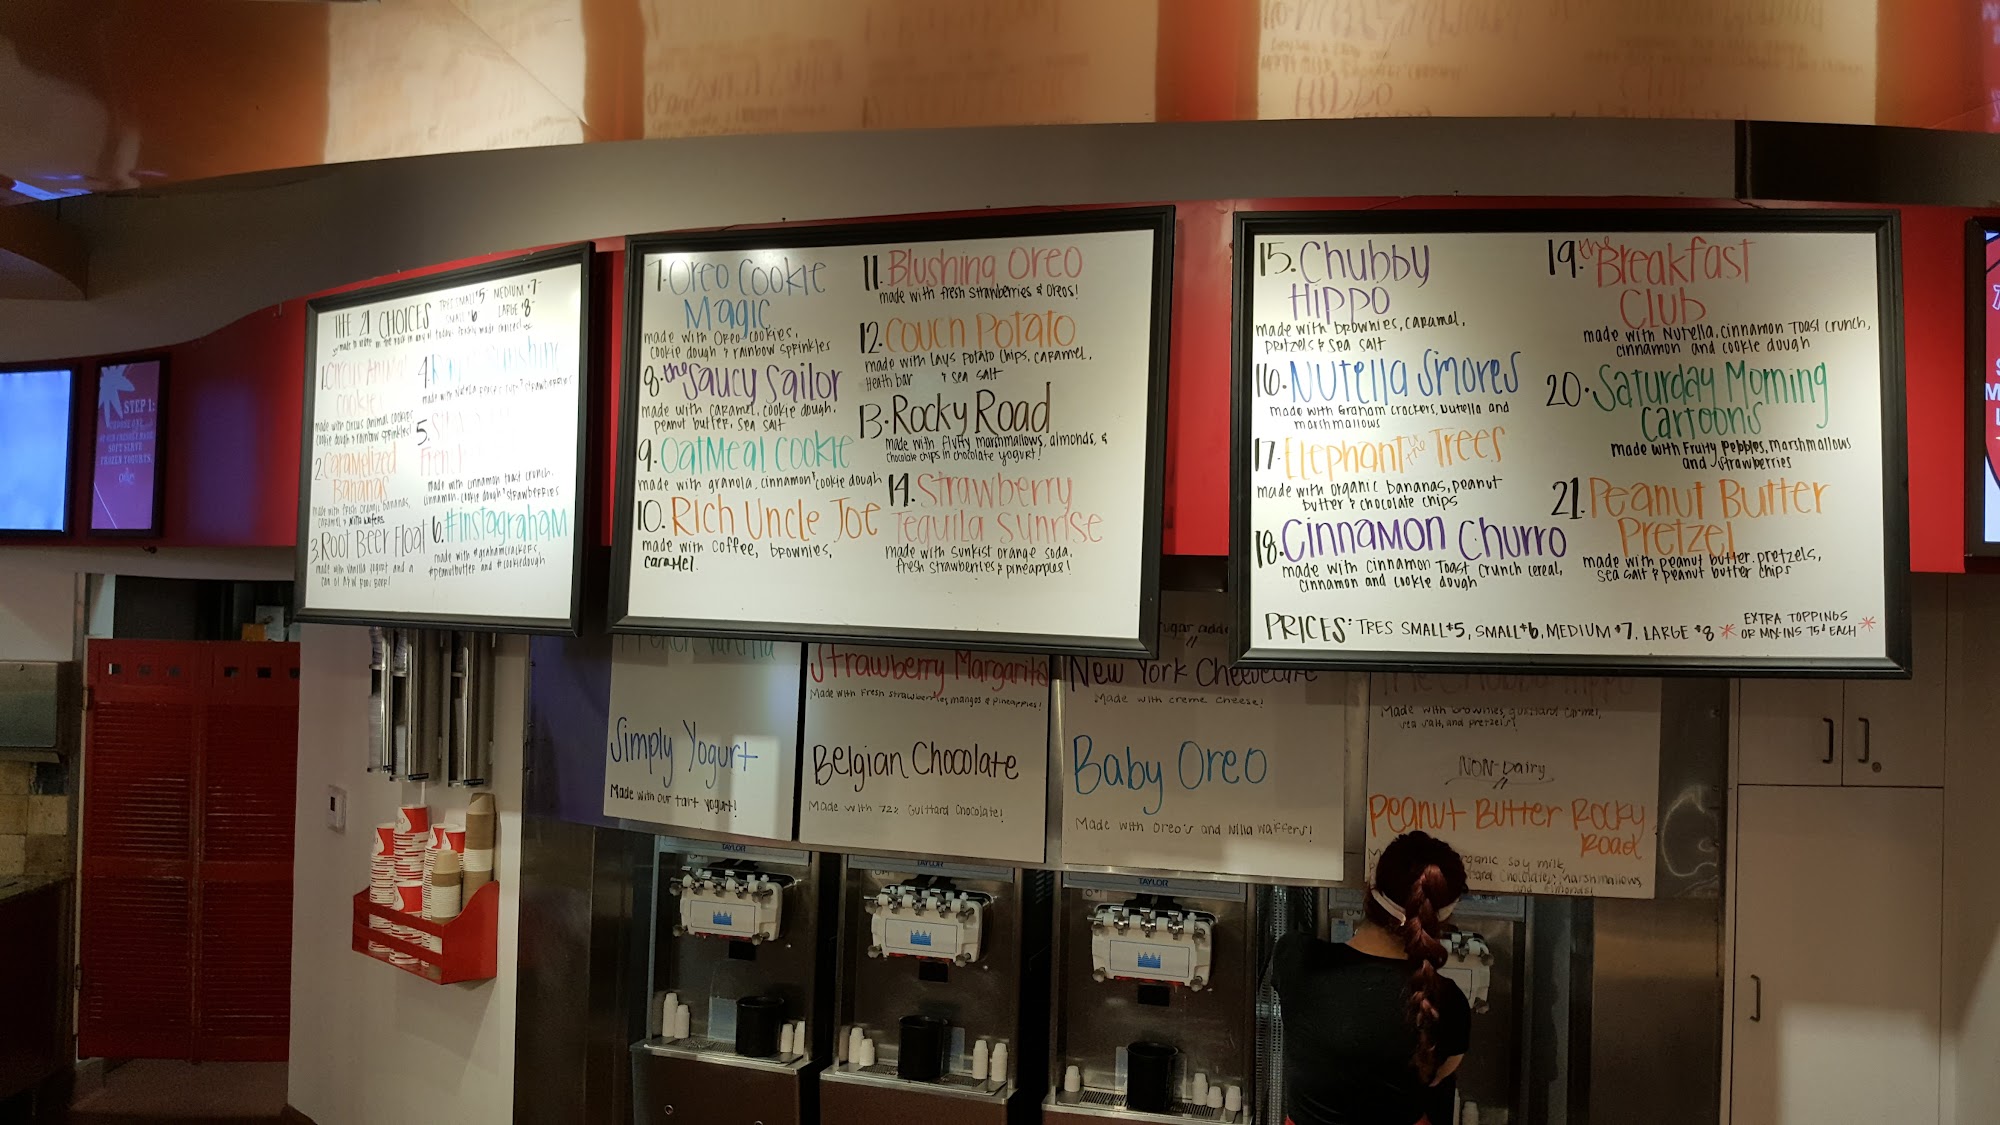 THE 21 CHOICES
TRES SMALL $5- MEDIUM $7-
SMALL $6 LARGE $8-
1. Circus Animal
Cookie
made with circus animal cookies
cookie dough & rainbow sprinkles!
2. Caramelized
Bananas
made with fresh organic bananas,
caramel & nilla wafers
3. Root Beer Float
made with vanilla yogurt and a
can of A&W root beer!
4.
5.
French
made with cinnamon toast crunch,
cinnamon, cookie dough & strawberries
6. #instagraham
made with #grahamcrackers,
#peanutbutter and #cookiedough
7. Oreo Cookie
Magic
made with Oreo cookies,
cookie dough & rainbow sprinkles
8. the Saucy Sailor
made with caramel, cookie dough,
peanut butter, sea salt
9. Oatmeal Cookie
made with granola, cinnamon & cookie dough
10. Rich Uncle Joe
made with coffee, brownies,
caramel.
11. Blushing Oreo
made with fresh strawberries & oreos!
12. Couch Potato
made with Lays potato chips, caramel,
Heath bar & sea salt
13. Rocky Road
made with fluffy marshmallows, almonds, &
chocolate chips in chocolate yogurt!
14. Strawberry
Tequila Sunrise
made with sunkist orange soda,
fresh strawberries & pineapples!
15. Chubby
Hippo
made with brownies, caramel,
pretzels & sea salt
16. Nutella S'mores
made with Graham crackers, Nutella and
marshmallows
17. Elephant in the Trees
made with organic bananas, peanut
butter & chocolate chips
18. Cinnamon Churro
made with cinnamon Toast Crunch cereal,
cinnamon and cookie dough
19. the Breakfast
Club
made with Nutella, cinnamon Toast crunch,
cinnamon and cookie dough
20. Saturday Morning
Cartoons
made with Fruity Pebbles, marshmallows
and strawberries
21. Peanut Butter
Pretzel
made with peanut butter, pretzels,
sea salt & peanut butter chips
PRICES: TRES SMALL $5, SMALL $6, MEDIUM $7, LARGE $8 * EXTRA TOPPINGS
OR MIX-INS 75¢ EACH *
STEP 1:
CHOOSE ONE
OF OUR FRESHLY MADE
SOFT SERVE
FROZEN YOGURTS.
French Vanilla
Simply Yogurt
Made with our tart yogurt!
Strawberry Margarita
Made with Fresh strawberries, mangos & pineapples!
Belgian Chocolate
Made with 72% Guittard Chocolate!
sugar added
New York Cheesecake
Made with creme cheese!
Baby Oreo
Made with Oreo's and Nilla Waffers!
The Chubby Hippo
Made with brownies, guittard caramel,
sea salt, and pretzels!
NON-Dairy
Peanut Butter Rocky
Road
organic soy milk,
Chocolate, marshmallows,
and almonds!
TAYLOR
TAYLOR
TAYLOR